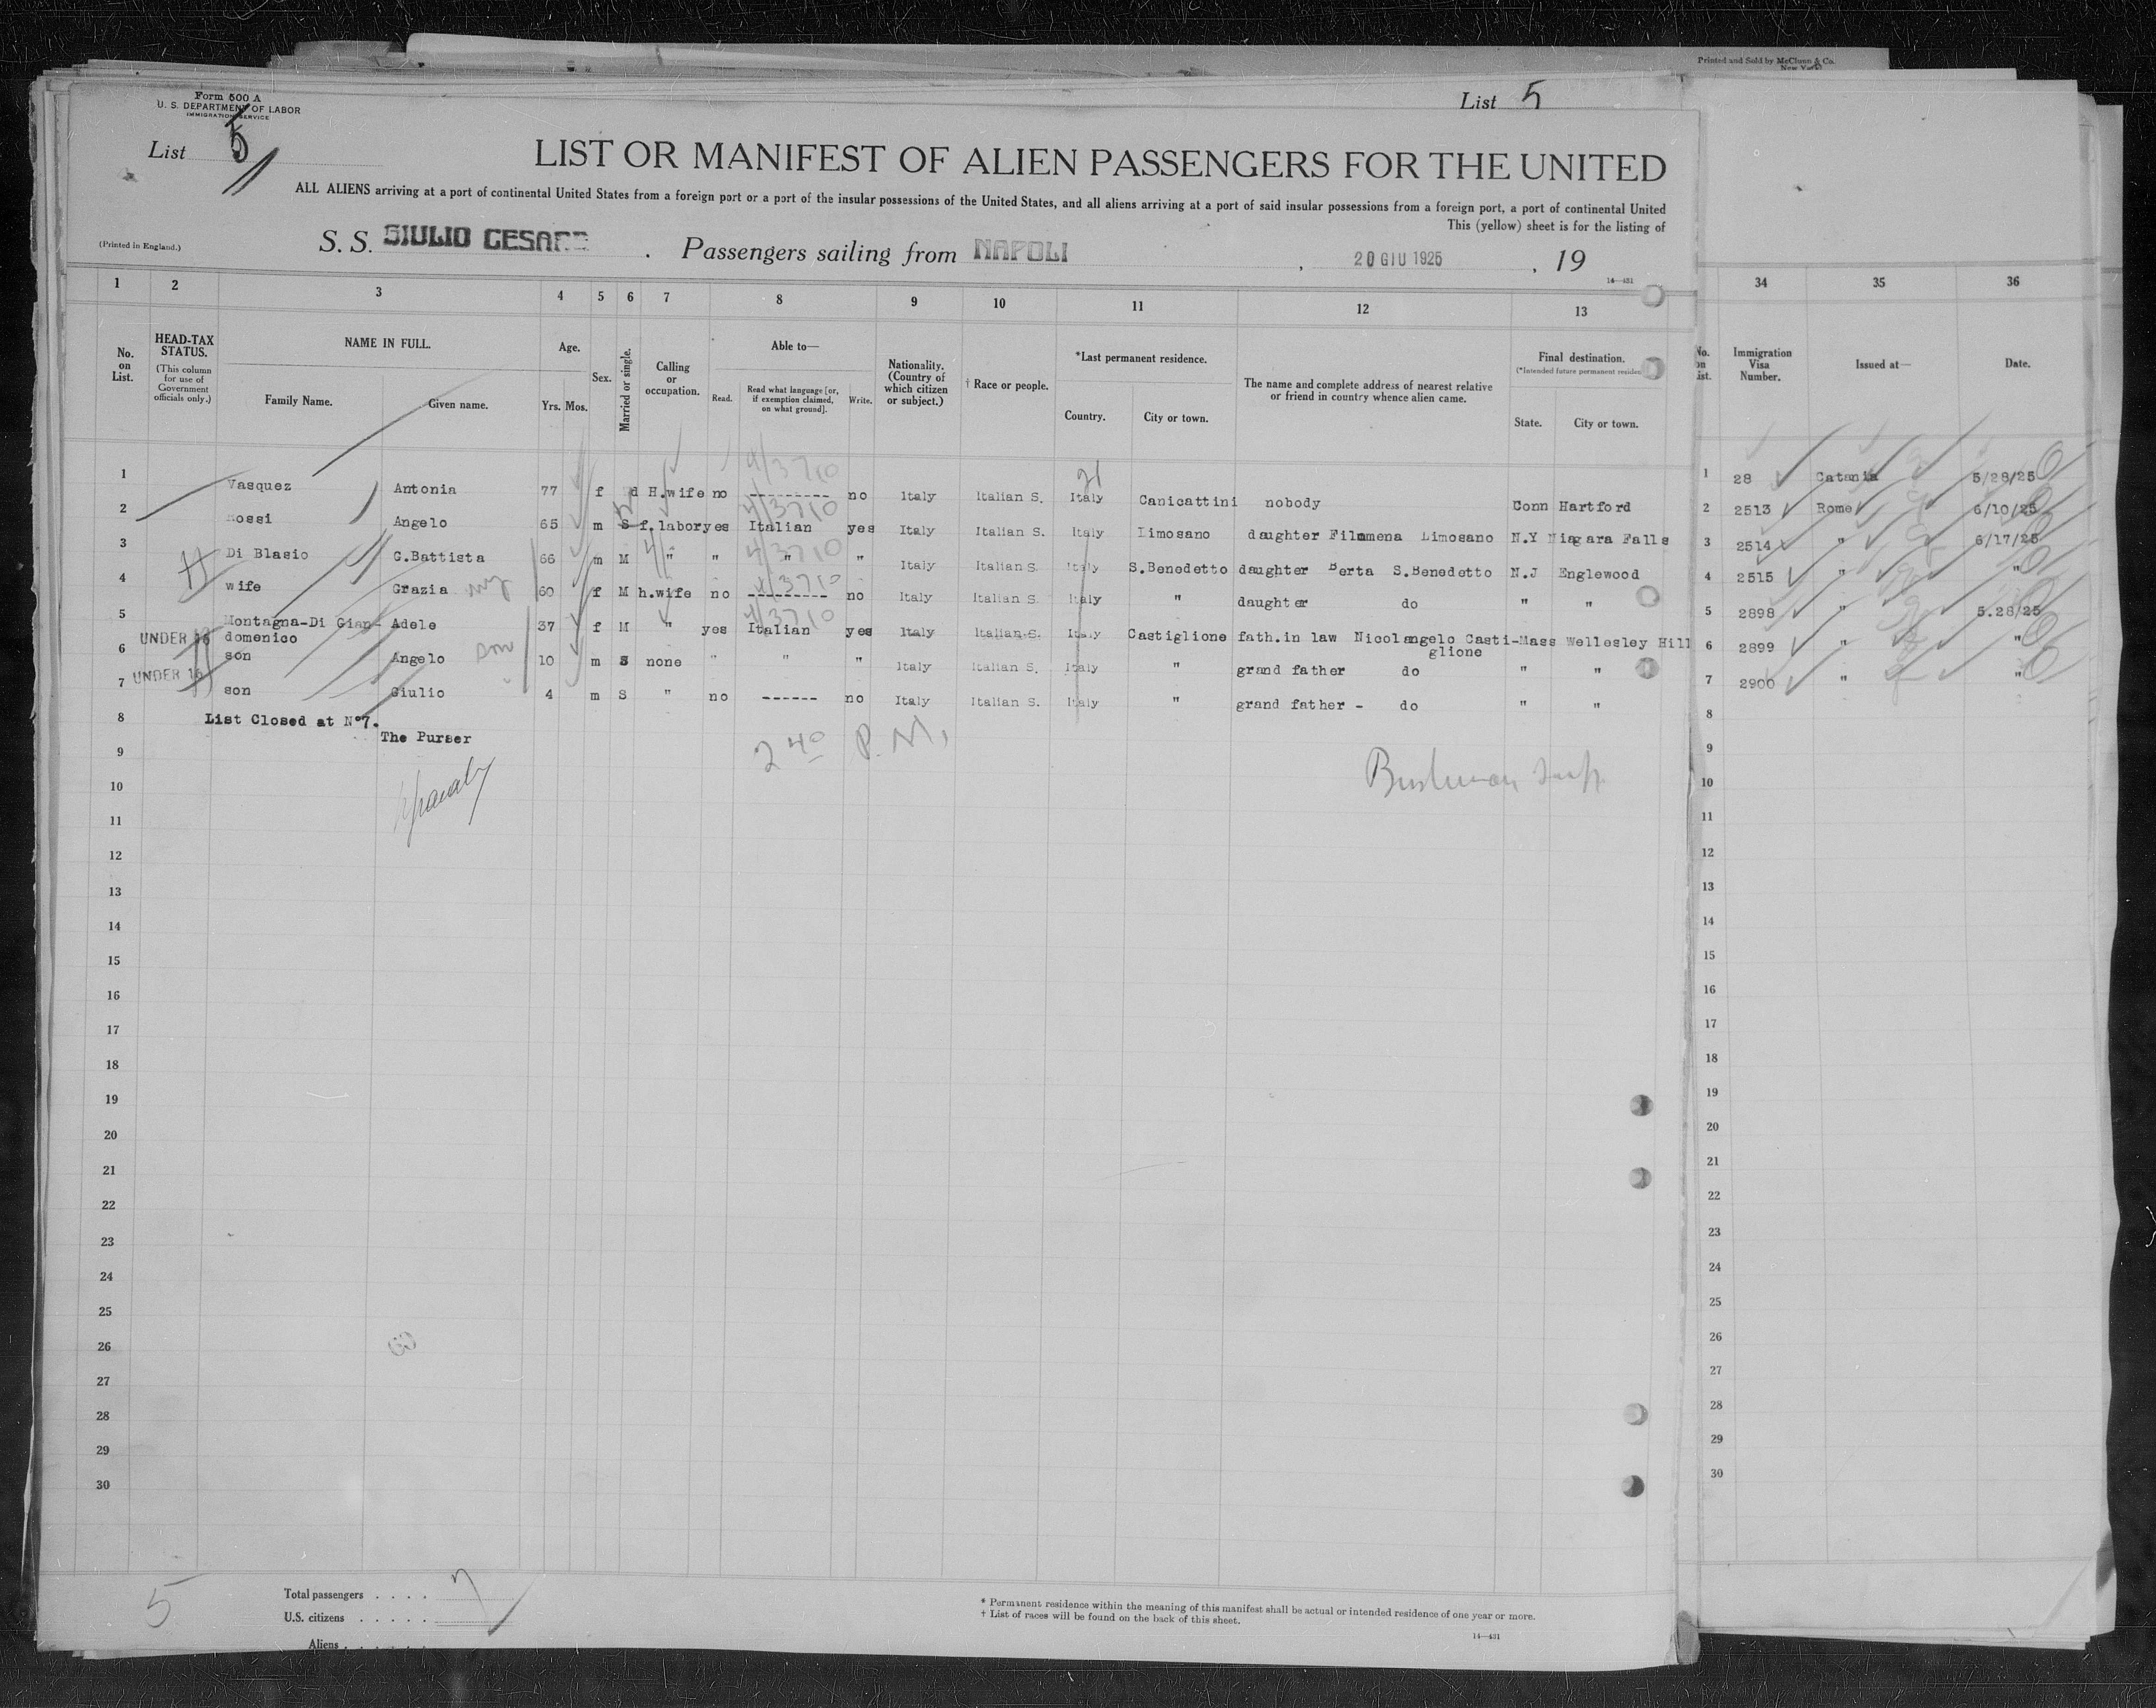 Printed and Sold by McClunn & Co.
New York
Form 500 A
U. S. DEPARTMENT OF LABOR
IMMIGRATION SERVICE
List 5
List 5
LIST OR MANIFEST OF ALIEN PASSENGERS FOR THE UNITED
ALL ALIENS arriving at a port of continental United States from a foreign port or a port of the insular possessions of the United States, and all aliens arriving at a port of said insular possessions from a foreign port, a port of continental United
This (yellow) sheet is for the listing of
(Printed in England.)
S. S. GIULIO CESARE . Passengers sailing from NAPOLI , 20 GIU 1925 , 19
14—431
1 2 3 4 5 6 7 8 9 10 11 12 13 34 35 36
No. on List.
HEAD-TAX STATUS.
(This column for use of Government officials only.)
NAME IN FULL.
Family Name. Given name.
Age.
Yrs. Mos.
Sex.
Married or single.
Calling or occupation.
Able to—
Read. Read what language [or, if exemption claimed, on what ground]. Write.
Nationality. (Country of which citizen or subject.)
† Race or people.
*Last permanent residence.
Country. City or town.
The name and complete address of nearest relative or friend in country whence alien came.
Final destination.
(*Intended future permanent residen
State. City or town.
No. on ist.
Immigration Visa Number.
Issued at—
Date.
1 Vasquez Antonia 77 f d H.wife no --------- no Italy Italian S. Italy Canicattini nobody Conn Hartford 1 28 Catania 5/28/25
2 Rossi Angelo 65 m S f.labor yes Italian yes Italy Italian S. Italy Limosano daughter Filomena Limosano N.Y Niagara Falls 2 2513 Rome 6/10/25
3 Di Blasio G.Battista 66 m M " " " " Italy Italian S. Italy S.Benedetto daughter Berta S.Benedetto N.J Englewood 3 2514 " 6/17/25
4 wife Grazia 60 f M h.wife no --------- no Italy Italian S. Italy " daughter do " " 4 2515 " "
5 Montagna-Di Gian- Adele 37 f M " yes Italian yes Italy Italian S. Italy Castiglione fath.in law Nicolangelo Casti- Mass Wellesley Hill 5 2898 " 5.28/25
UNDER 16 domenico glione
6 son Angelo son 10 m S none " " " Italy Italian S. Italy " grand father do " " 6 2899 " "
UNDER 16
7 son Giulio 4 m S " no ------ no Italy Italian S. Italy " grand father - do " " 7 2900 " "
4/3710
4/3710
4/3710
4/3710
4/3710
8 List Closed at N°7. 8
The Purser
9 2 40 P. M. 9
10 10
11 11
12 12
13 13
14 14
15 15
16 16
17 17
18 18
19 19
20 20
21 21
22 22
23 23
24 24
25 25
26 26
27 27
28 28
29 29
30 30
5
Total passengers . . . . 7
U.S. citizens . . . . .
Aliens . . . . . .
* Permanent residence within the meaning of this manifest shall be actual or intended residence of one year or more.
† List of races will be found on the back of this sheet.
14—431